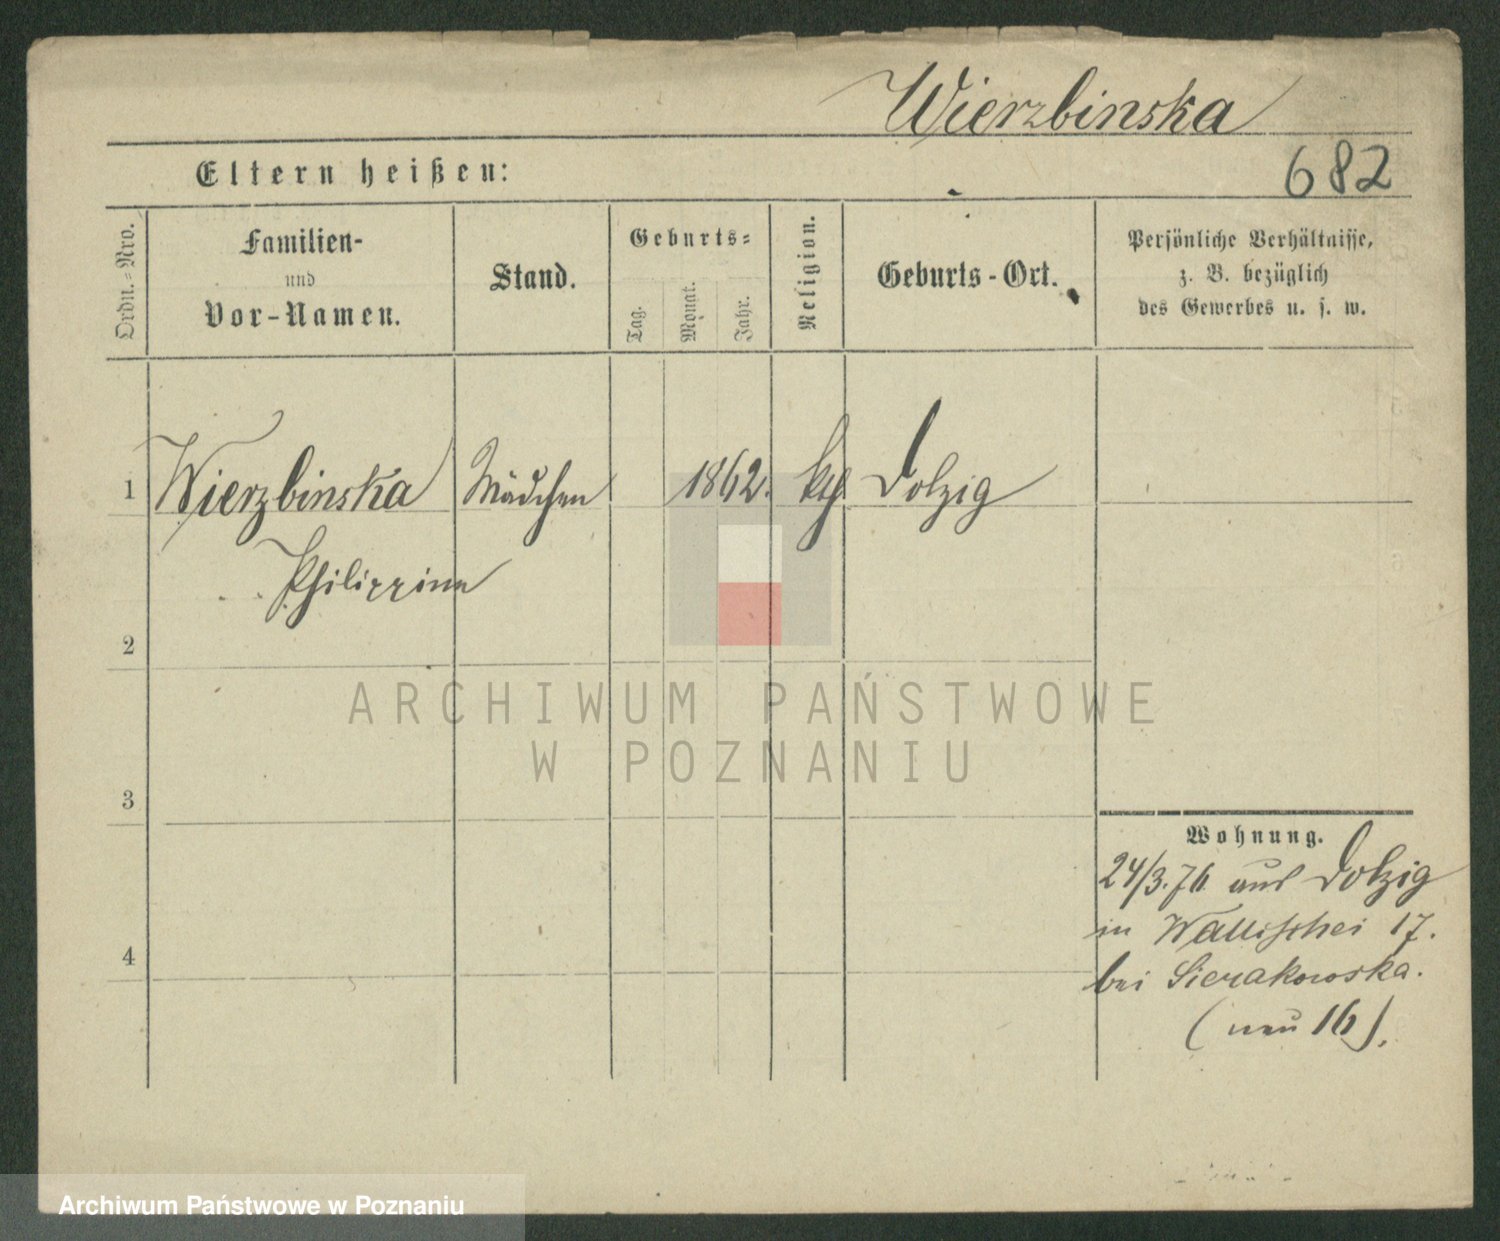 Wierzbinska
Eltern heißen:
682
Ordn.-Nro.
Familien-
und
Vor-Namen.
Stand.
Geburts-
Tag.
Monat.
Jahr.
Religion.
Geburts-Ort.
Persönliche Verhältnisse,
z. B. bezüglich
des Gewerbes u. s. w.
1 Wierzbinska Mädchen 1862. kth Dolzig
Philippine
2
3
4
Wohnung.
24/3.76 aus Dolzig
in Wallischei 17.
bei Sierakowska.
(neu 16).
ARCHIWUM PAŃSTWOWE
W POZNANIU
Archiwum Państwowe w Poznaniu